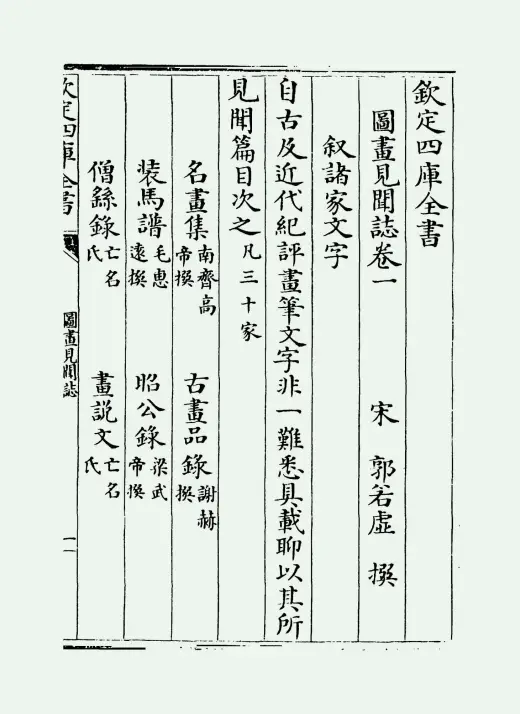 欽定四庫全書
圖畫見聞誌卷一
宋 郭若虛 撰
叙諸家文字
自古及近代紀評畫筆文字非一難悉具載聊以其所
見聞篇目次之凡三十家
名畫集南齊高帝撰 古畫品錄謝赫撰
裝馬譜毛惠遠撰 昭公錄梁武帝撰
僧繇錄亡名氏 畫說文亡名氏
欽定四庫全書
圖畫見聞誌